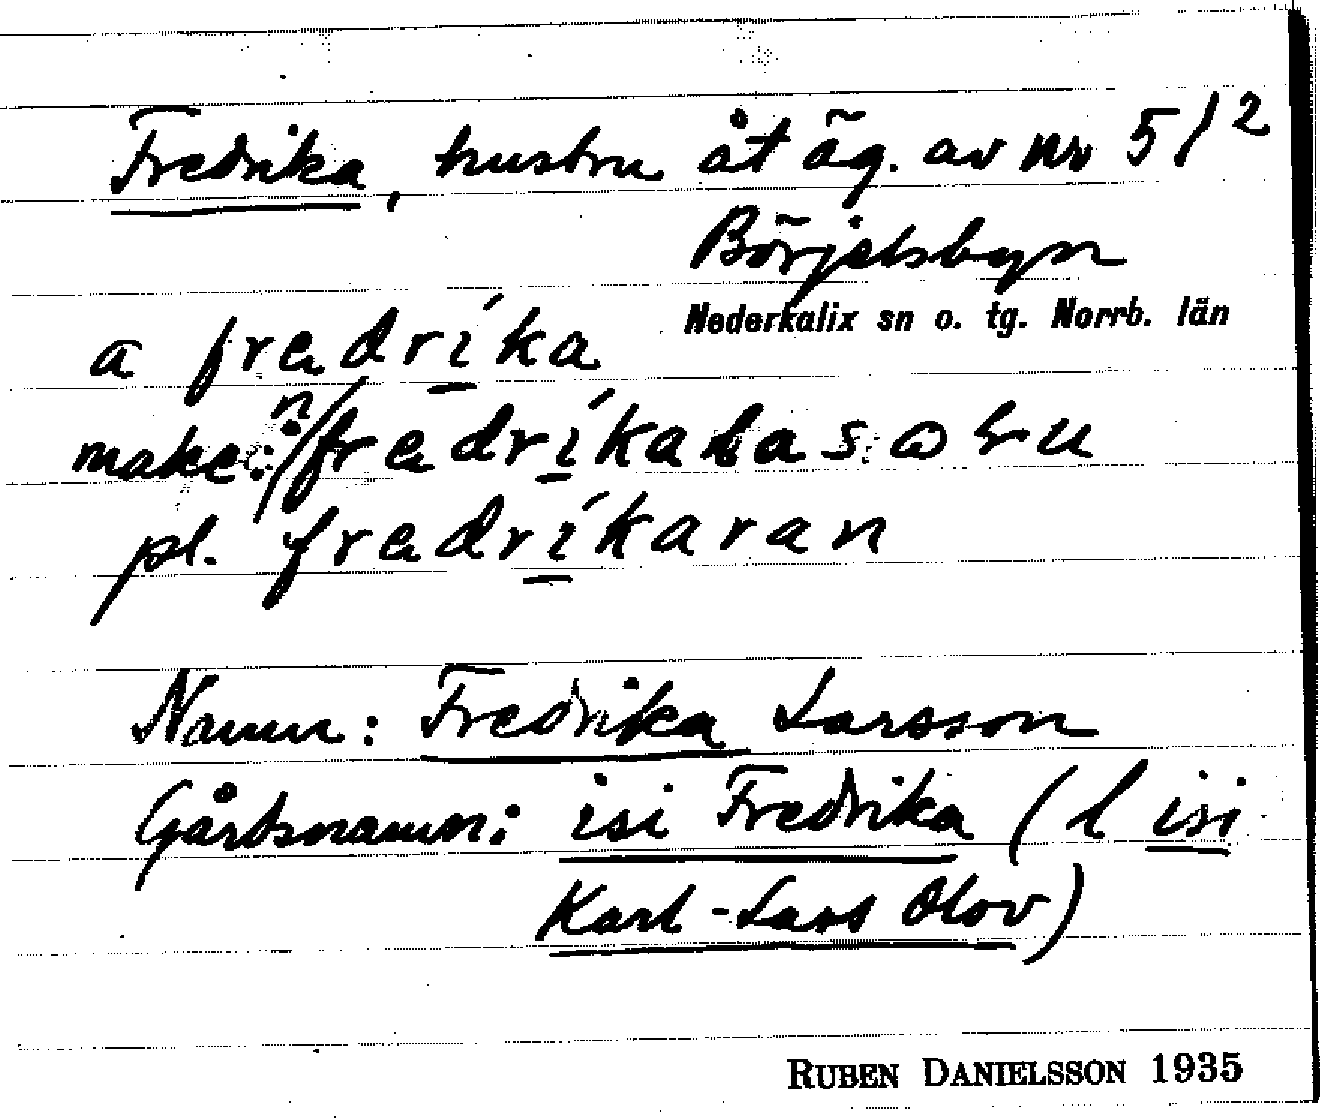 Fredrika, hustru åt äg. av nr 5/2
Börjelsbyn
Nederkalix sn o. tg. Norrb. län
a fredríka
make: n/fredríkalasωɫu
pl. fredríkaran
Namn: Fredrika Larsson
Gårdsnamn: isi Fredrika (l isi
Karl-Lars Olov)
RUBEN DANIELSSON 1935